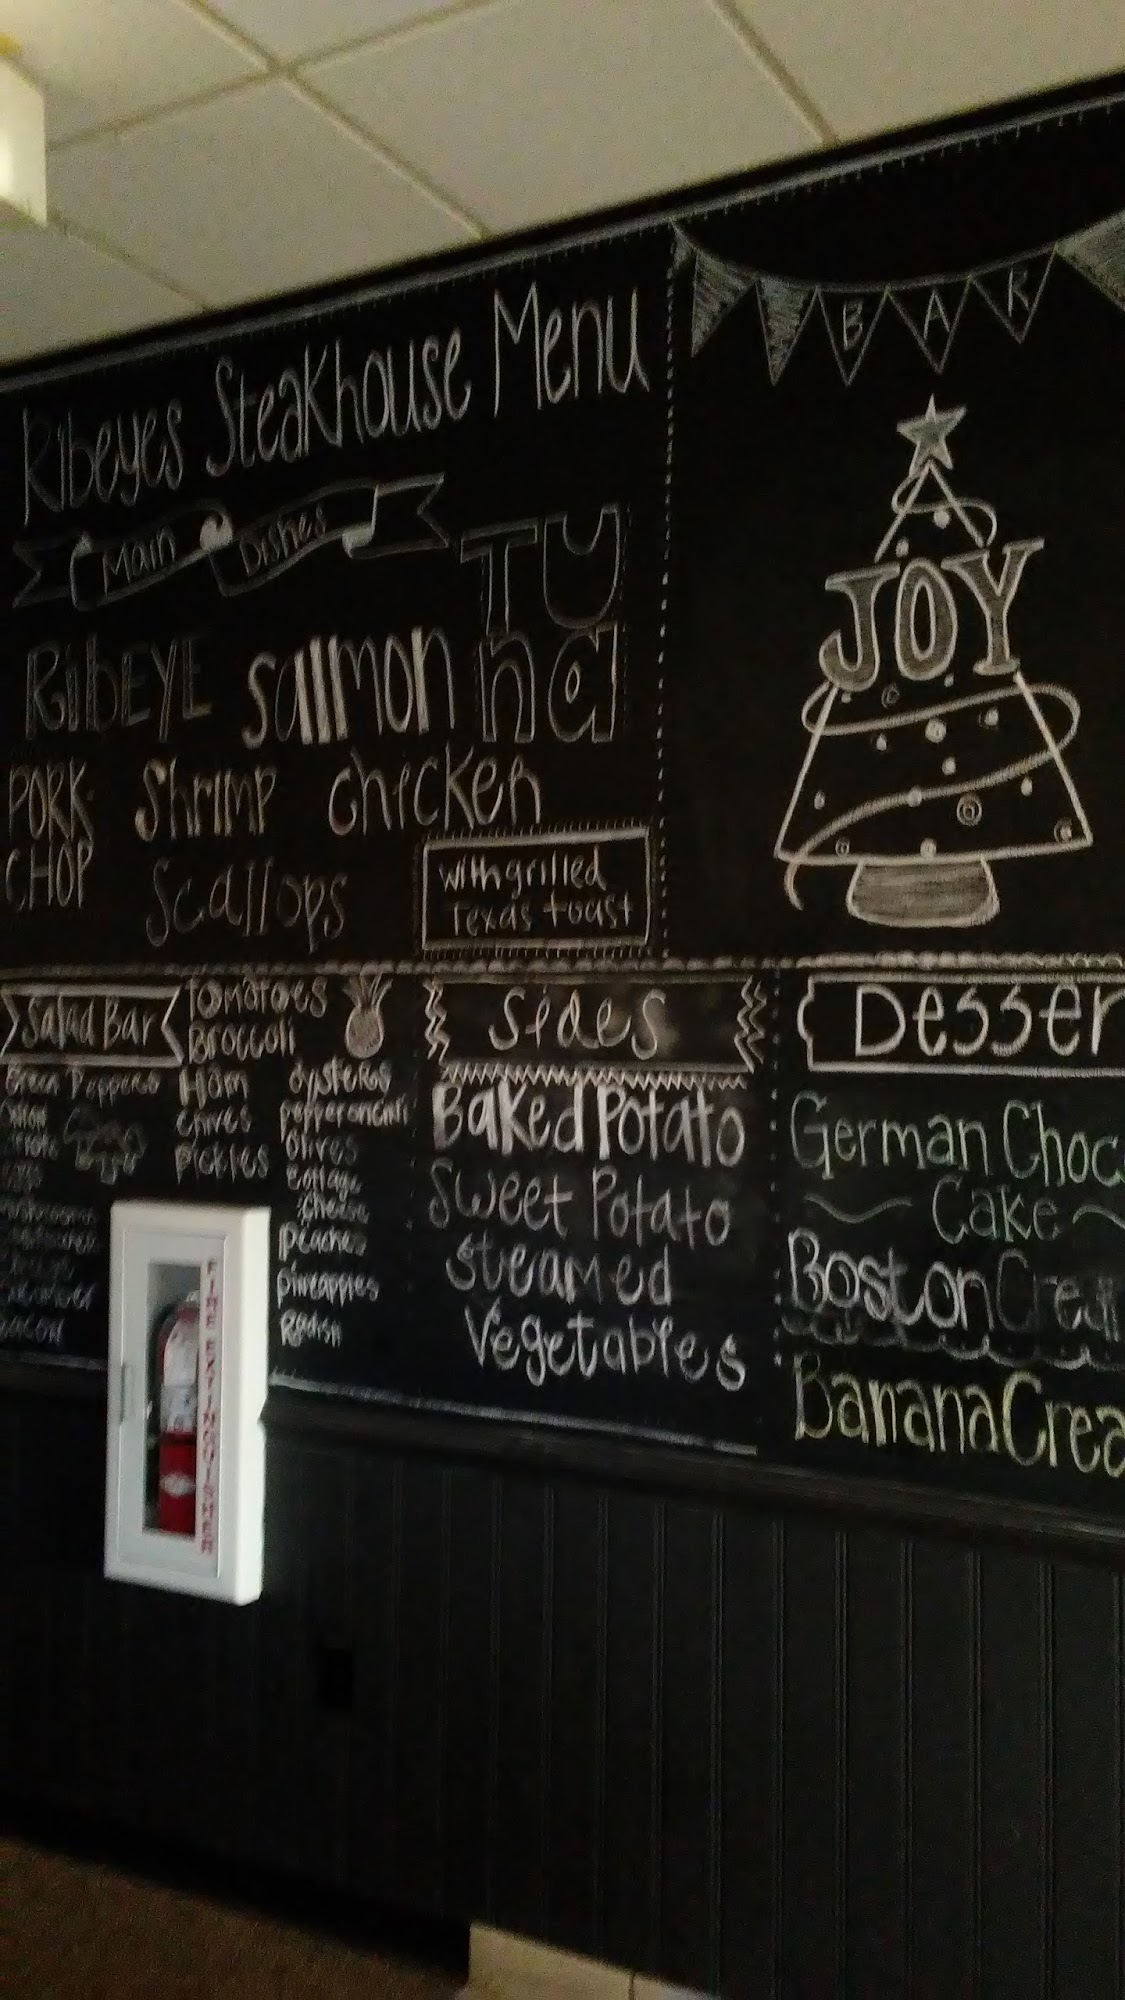 Ribeyes Steakhouse Menu
Main Dishes
RibEYE salmon TUna
PORK CHOP Shrimp chicken
Scallops
with grilled
Texas toast
BAR
JOY
Salad Bar
Green Peppers
Bacon
Tomatoes
Broccoli
Ham
chives
pickles
oysters
pepperoncini
olives
cottage
cheese
peaches
pineapples
Radish
Sides
Baked Potato
Sweet Potato
Steamed
Vegetables
Desser
German Choc
Cake
Boston Cream
Banana Crea
FIRE EXTINGUISHER